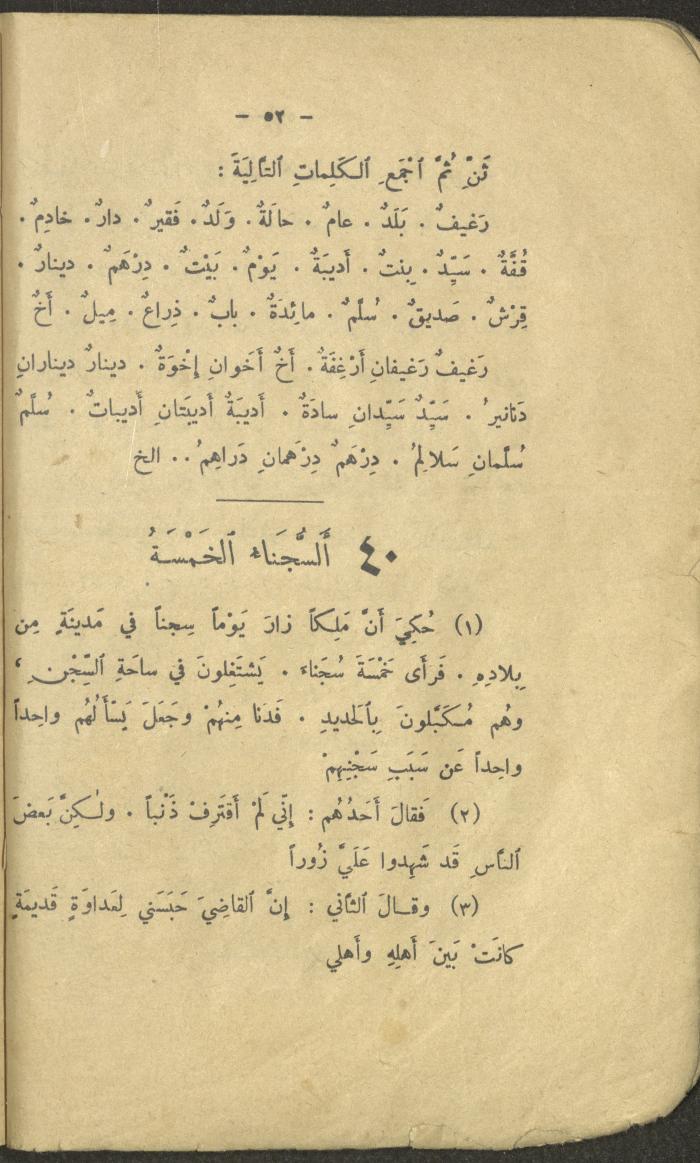 - ٥٢ -
ثَنِّ ثُمَّ ٱجْمَعِ ٱلكَلِماتِ ٱلتَّالِيَةَ :
رَغيفٌ . بَلَدٌ . عامٌ . حالَةٌ . وَلَدٌ . فَقيرٌ . دارٌ . خادِمٌ .
قُفَّةٌ . سَيِّدٌ . بِنتٌ . أَديبَةٌ . يَوْمٌ . بَيْتٌ . دِرْهَمٌ . دينارٌ .
قِرْشٌ . صَديقٌ . سُلَّمٌ . مائِدَةٌ . بابٌ . ذِراعٌ . مِيلٌ . أَخٌ
رَغيفٌ رَغيفانِ أَرْغِفَةٌ . أَخٌ أَخَوانِ إِخْوَةٌ . دينارٌ دينارانِ
دَنانيرُ . سَيِّدٌ سَيِّدانِ سادَةٌ . أَديبَةٌ أَديبَتانِ أَديباتٌ . سُلَّمٌ
سُلَّمانِ سَلالِمُ . دِرْهَمٌ دِرْهَمانِ دَراهِمُ .. الخ
٤٠ أَلسُّجَناءُ ٱلخَمْسَةُ
(١) حُكِيَ أَنَّ مَلِكاً زارَ يَوْماً سِجناً في مَدينَةٍ مِن
بِلادِهِ . فَرَأَى خَمْسَةَ سُجَناءَ . يَشتَغِلونَ في ساحَةِ ٱلسِّجْنِ ،
وهُم مُكَبَّلونَ بِٱلحَديدِ . فَدَنا مِنهُمْ وجَعَلَ يَسْأَلُهُم واحِداً
واحِداً عَن سَبَبِ سَجْنِهِمْ
(٢) فَقالَ أَحَدُهُم : إِنّي لَمْ أَقتَرِفْ ذَنْباً . ولٰكِنَّ بَعضَ
ٱلنَّاسِ قَد شَهِدوا عَلَيَّ زُوراً
(٣) وقالَ ٱلثَّاني : إِنَّ ٱلقاضِيَ حَبَسَني لِعَداوَةٍ قَديمَةٍ
كانَتْ بَينَ أَهلِهِ وأَهلي